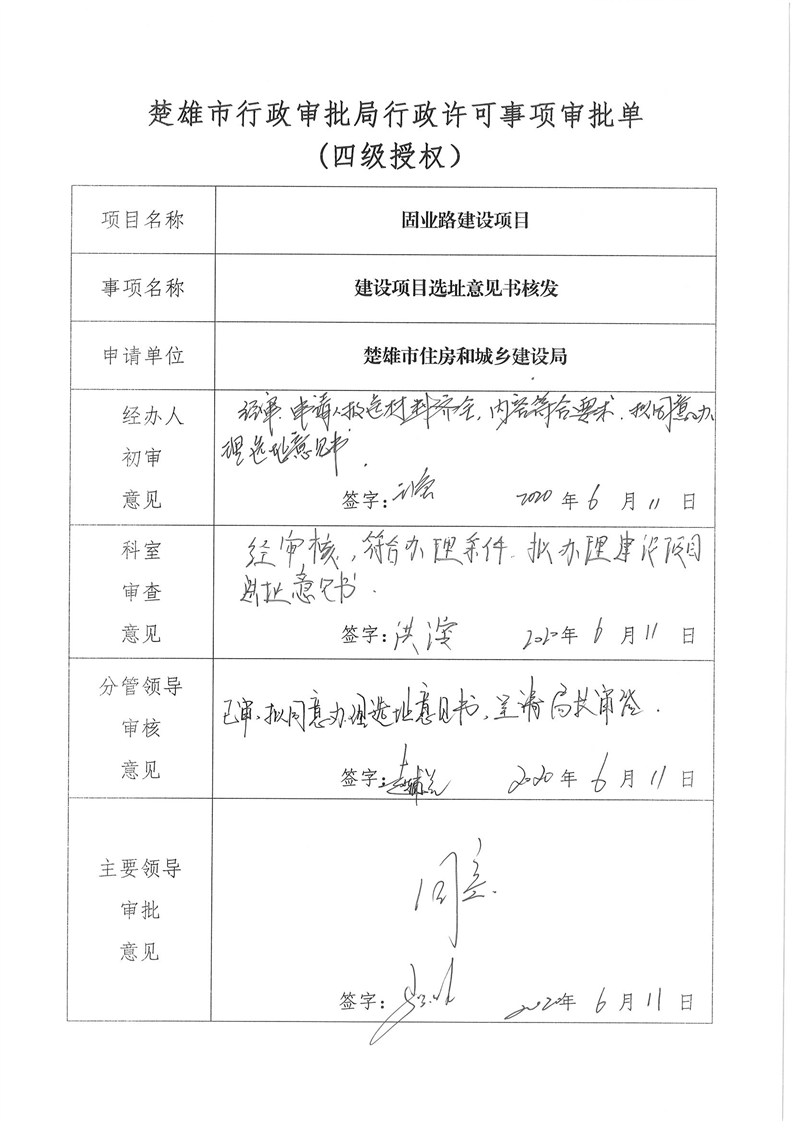 楚雄市行政审批局行政许可事项审批单
(四级授权)
项目名称 固业路建设项目
事项名称 建设项目选址意见书核发
申请单位 楚雄市住房和城乡建设局
经办人
初审
意见
经审,申请人报送材料齐全,内容符合要求,拟同意办
理选址意见书.
签字: 2020 年 6 月 11 日
科室
审查
意见
经审核,符合办理条件.拟办理建设项目
选址意见书.
签字:洪 2020年 6 月 11 日
分管领导
审核
意见
已审,拟同意办理选址意见书,呈请局长审签.
签字: 2020 年 6 月 11 日
主要领导
审批
意见
同意.
签字: 2020年 6 月 11 日